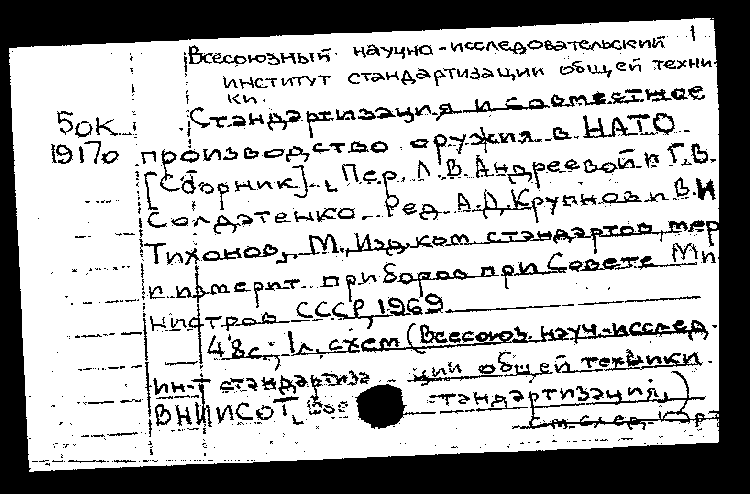 1
Всесоюзный научно-исследовательский
институт стандартизации общей техни-
ки.
Стандартизация и совместное
50К
1917о производство оружия в НАТО.
[Сборник]. Пер. Л.В. Андреевой и Г.В.
Солдатенко. Ред. А.Д. Крупнов и В.И
Тихонов. М., Изд. ком. стандартов, мер
и измерит. приборов при Совете Ми-
нистров СССР, 1969.
48с; 1л. схем (Всесоюз. науч.-исслед.
ин-т стандартиза ции общей техники
ВНИИСОТ. Вое стандартизация.)
См. след. карт